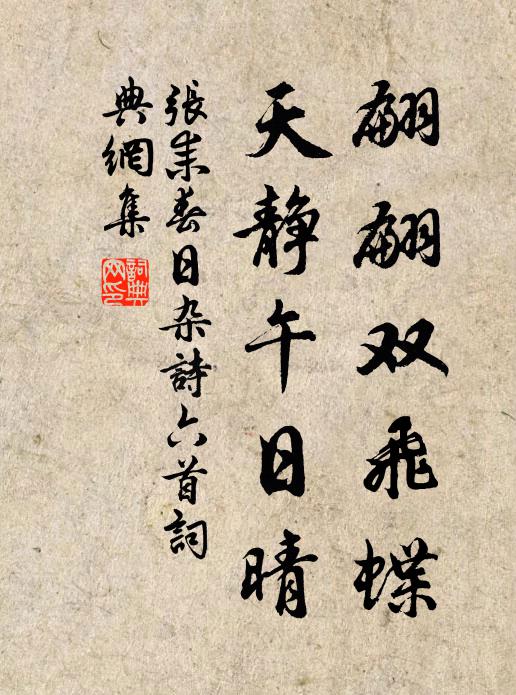 翩翩双飞蝶
天静午日晴
張耒春日杂詩六首詞
典網集
詞典网印